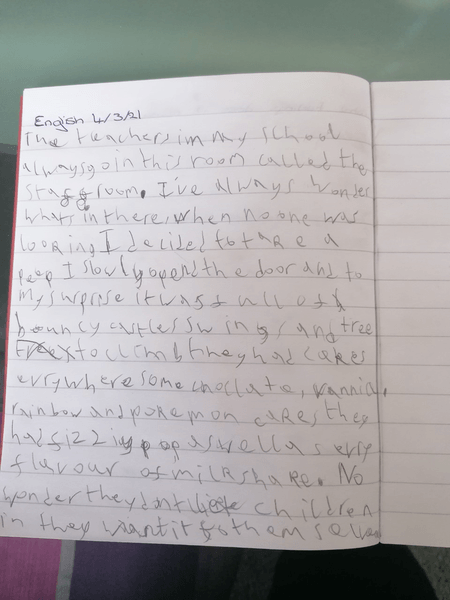 Engish 4/3/21
The teachers in my school
always go in this room called the
staff room. I've always wonder
whats in there, when no one was
looking I decided to take a
peep I slowly opend the door and to
my surprise it was full of
bouncy castles swings and tree
to climb they had cakes
evrywhere some choclate, vannia,
rainbow and pokemon cakes they
had fizzing pop aswell as evry
flavour of milkshake. No
wonder they dont let children
in they want it fo themselves